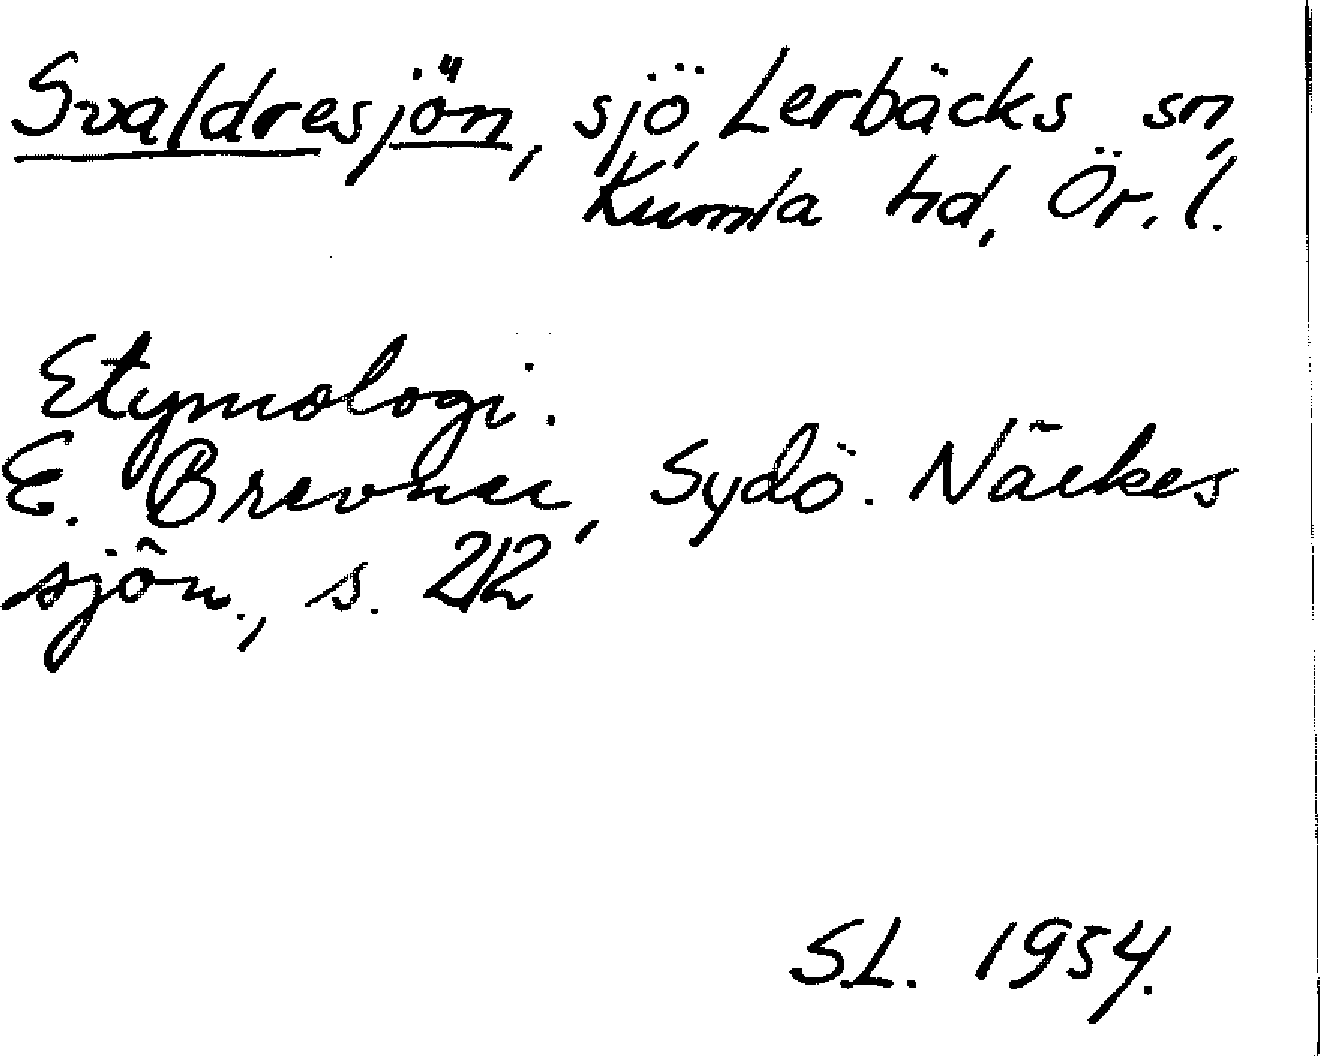 Svaldresjön, sjö, Lerbäcks sn,
Kumla hd, Ör. l.
Etymologi.
E. Brevner, Sydö. Närkes
sjön., s. 212
S.L. 1954.